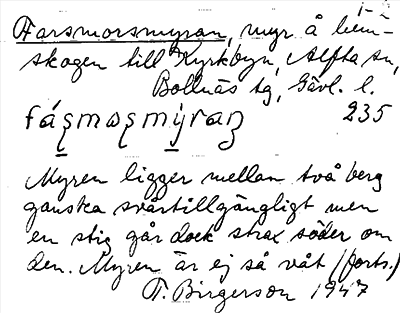 1-2
Farsmorsmyran, myr å hem-
skogen till Kyrkbyn, Alfta sn,
Bollnäs tg, Gävl. l.
235
Myren ligger mellan två berg
ganska svårtillgängligt men
en stig går dock strax söder om
den. Myren är ej så våt (forts.)
T. Birgerson 1947